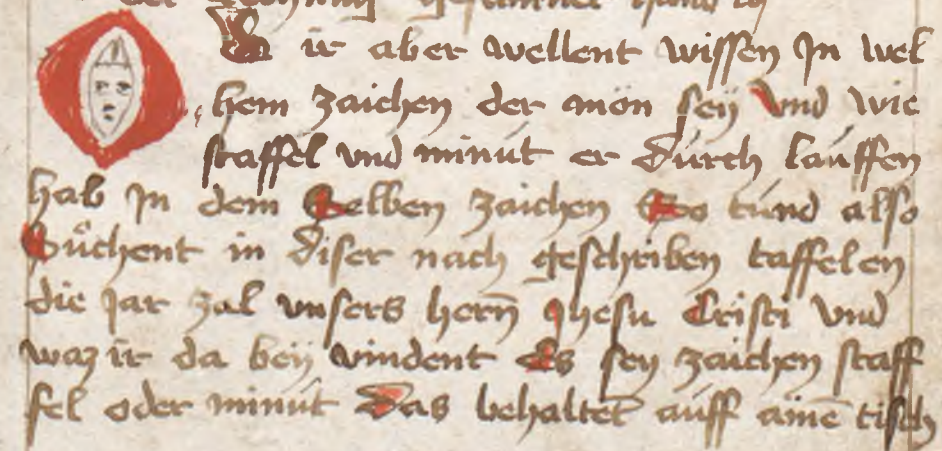 der
O b ir aber wellent wissen Jn wel
hem zaichen der mon seÿ Vnd wie
staffel vnd minut er durch lauffen
hab Jn dem Selben zaichen So tund also
Suͦchent in diser nach geschriben taffelen
die Jar zal vnsers hern̄ Jhesu Cristi vnd
waz ir da beÿ vindent Es sey zaichen staff
fel oder minut Das behaltet auff aine᷑ tisch